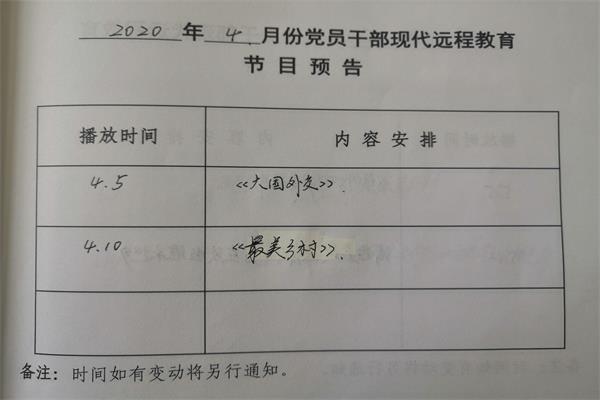 2020 年 4 月份党员干部现代远程教育
节目预告
播放时间 内容安排
4.5 《大国外交》.
4.10 《最美乡村》.
备注：时间如有变动将另行通知。